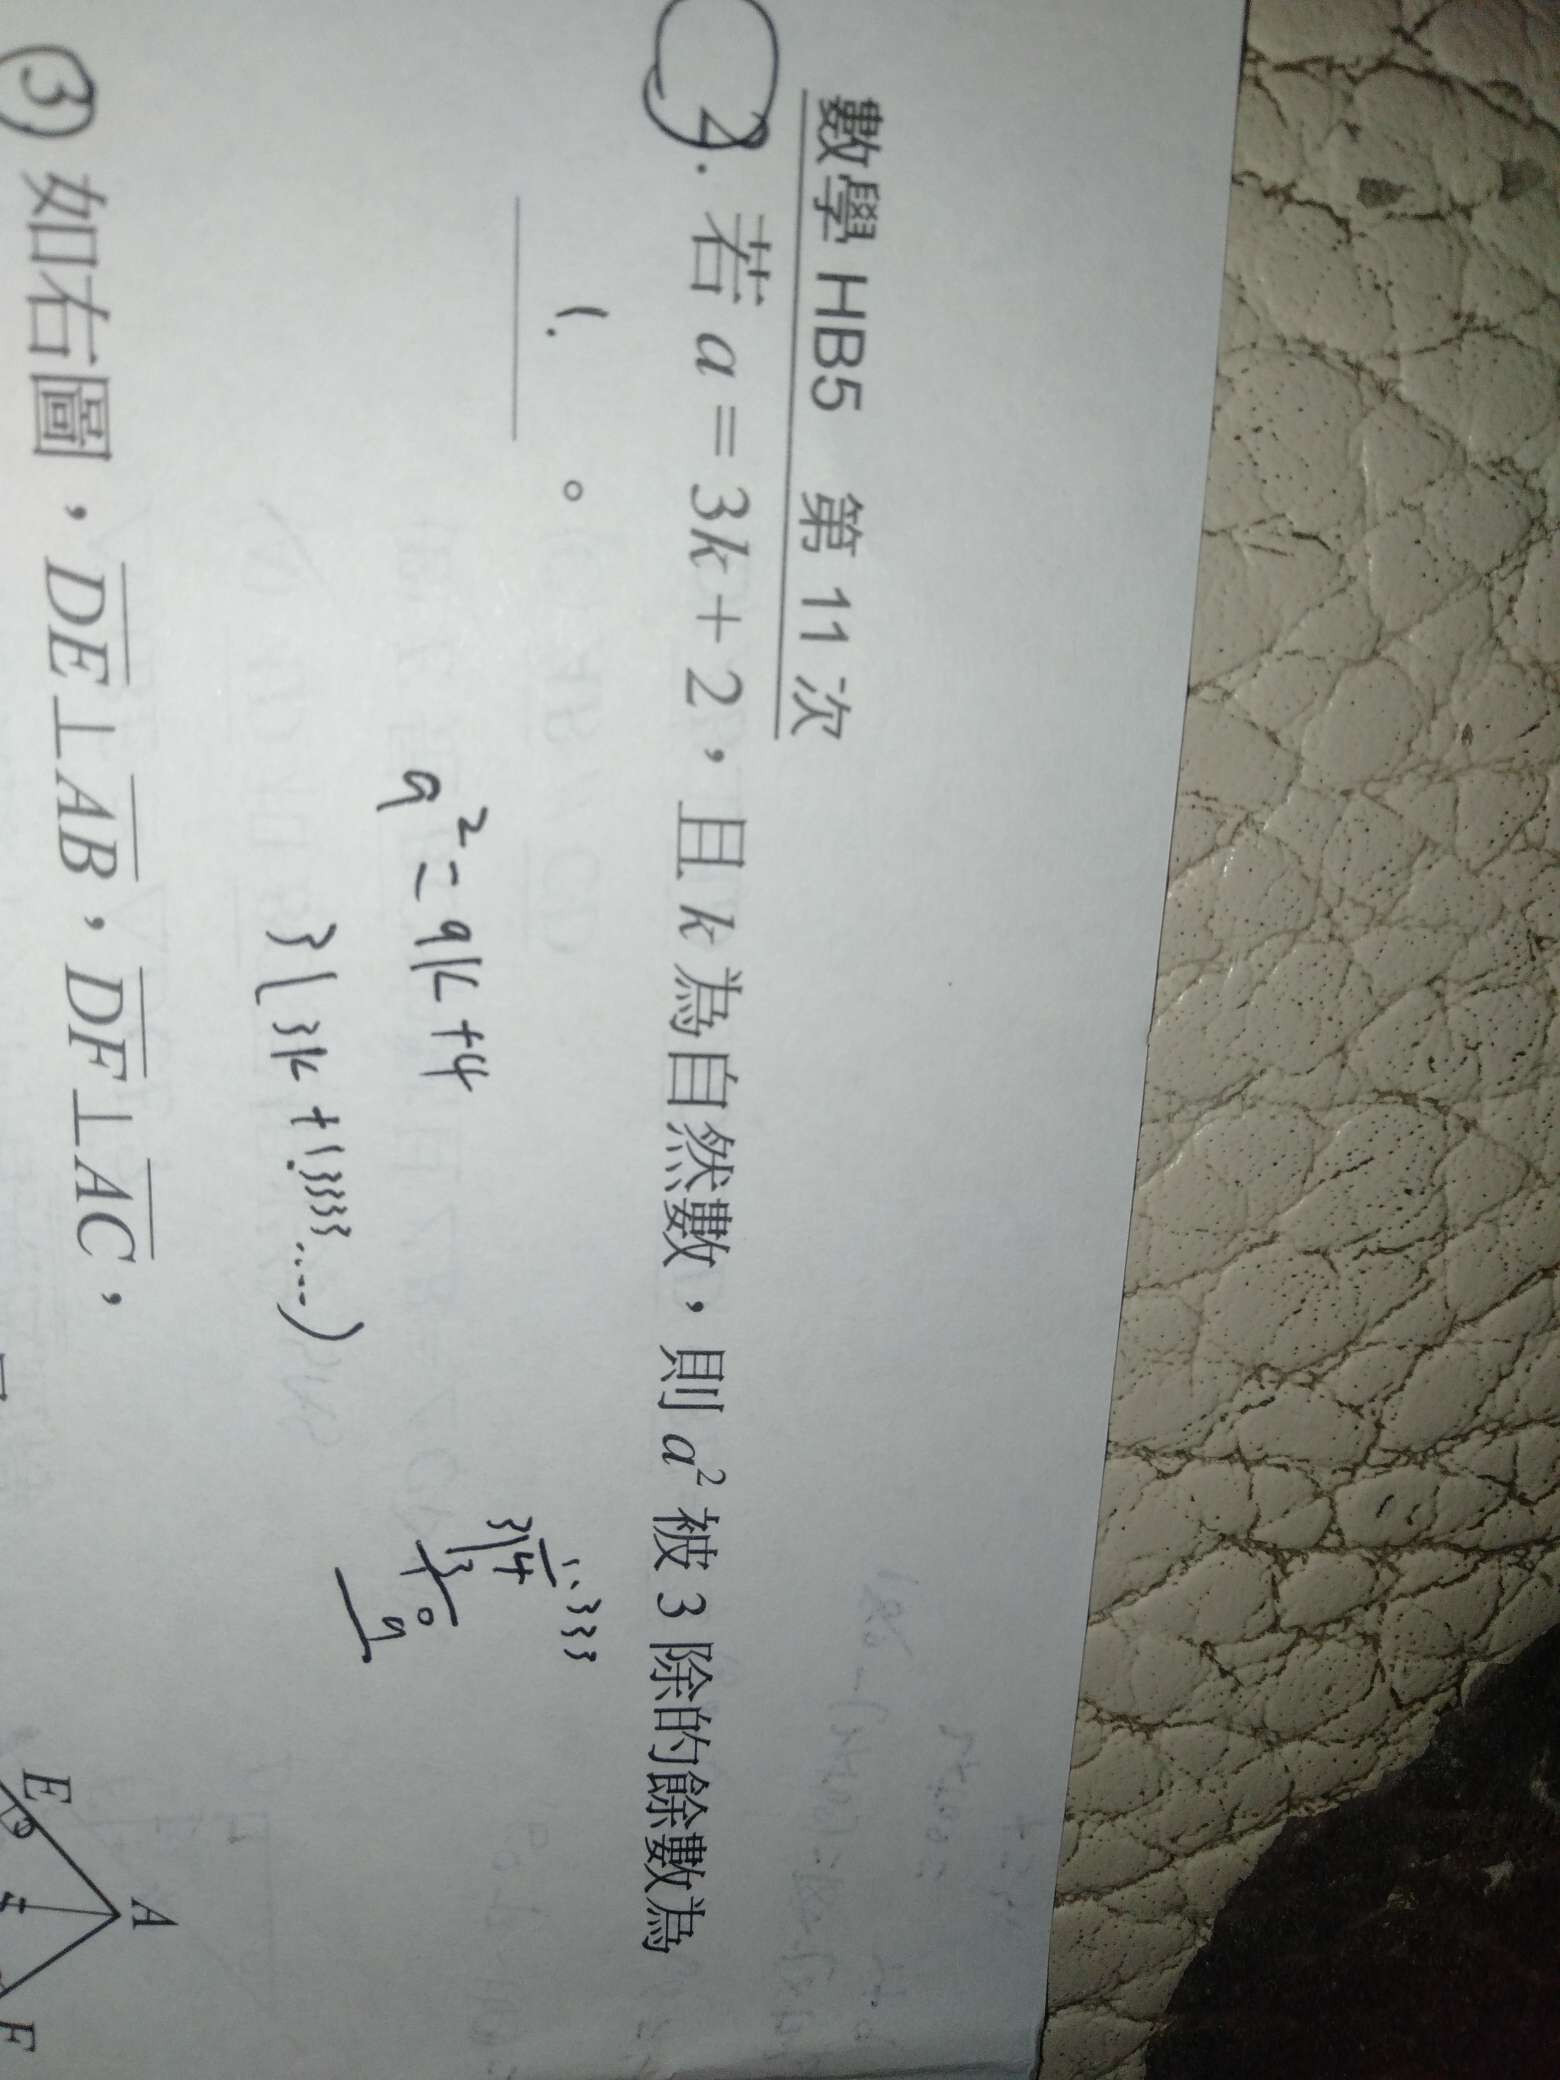 數學 HB5 第 11 次
2. 若 a = 3k + 2，且 k 為自然數，則 a² 被 3 除的餘數為
1. 。
1.333
3 4
3
a² = 9k + 4
3(3k + 1.3333.....)
3) 如右圖，DE⊥AB，DF⊥AC，
A
E
F